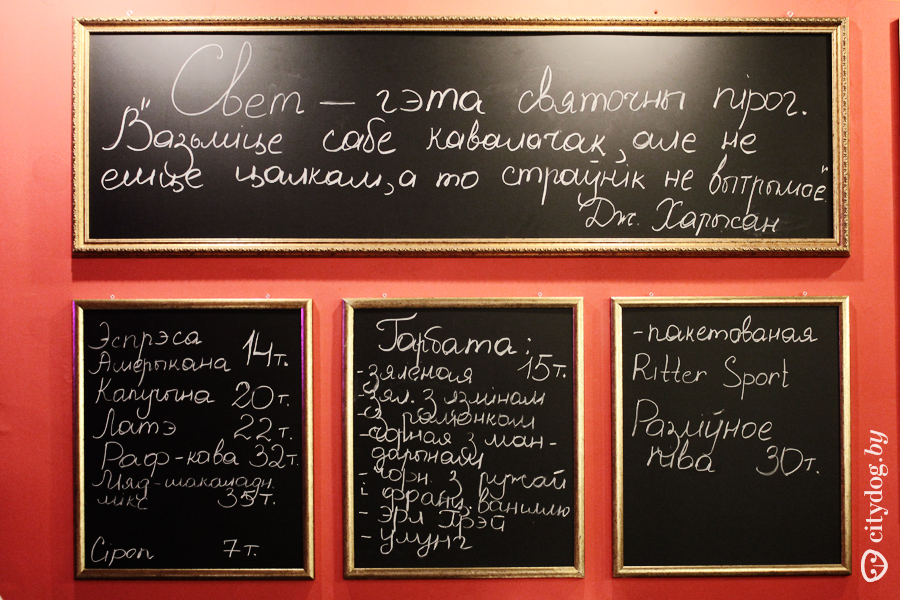 Свет — гэта святочны пірог.
"Вазьміце сабе кавалачак, але не
еміце цалкам, а то страўнік не вытрымае"
Дж. Харысан
Эспрэса
Амерыкана 14т.
Капучына 20т.
Латэ 22т.
Раф-кава 32т.
Мяд-шакаладн.
мікс 35т.
Сіроп 7т.
Гарбата:
-зялёная 15т.
-зял. з язмінам
-з рамонкам
-чорная з ман-
дарынам
-чорн. з ружай
і франц. ваніллю
- эрл Грэй
- улунг
-пакетованая
Ritter Sport
Разліўное
піва 30т.
citydog.by